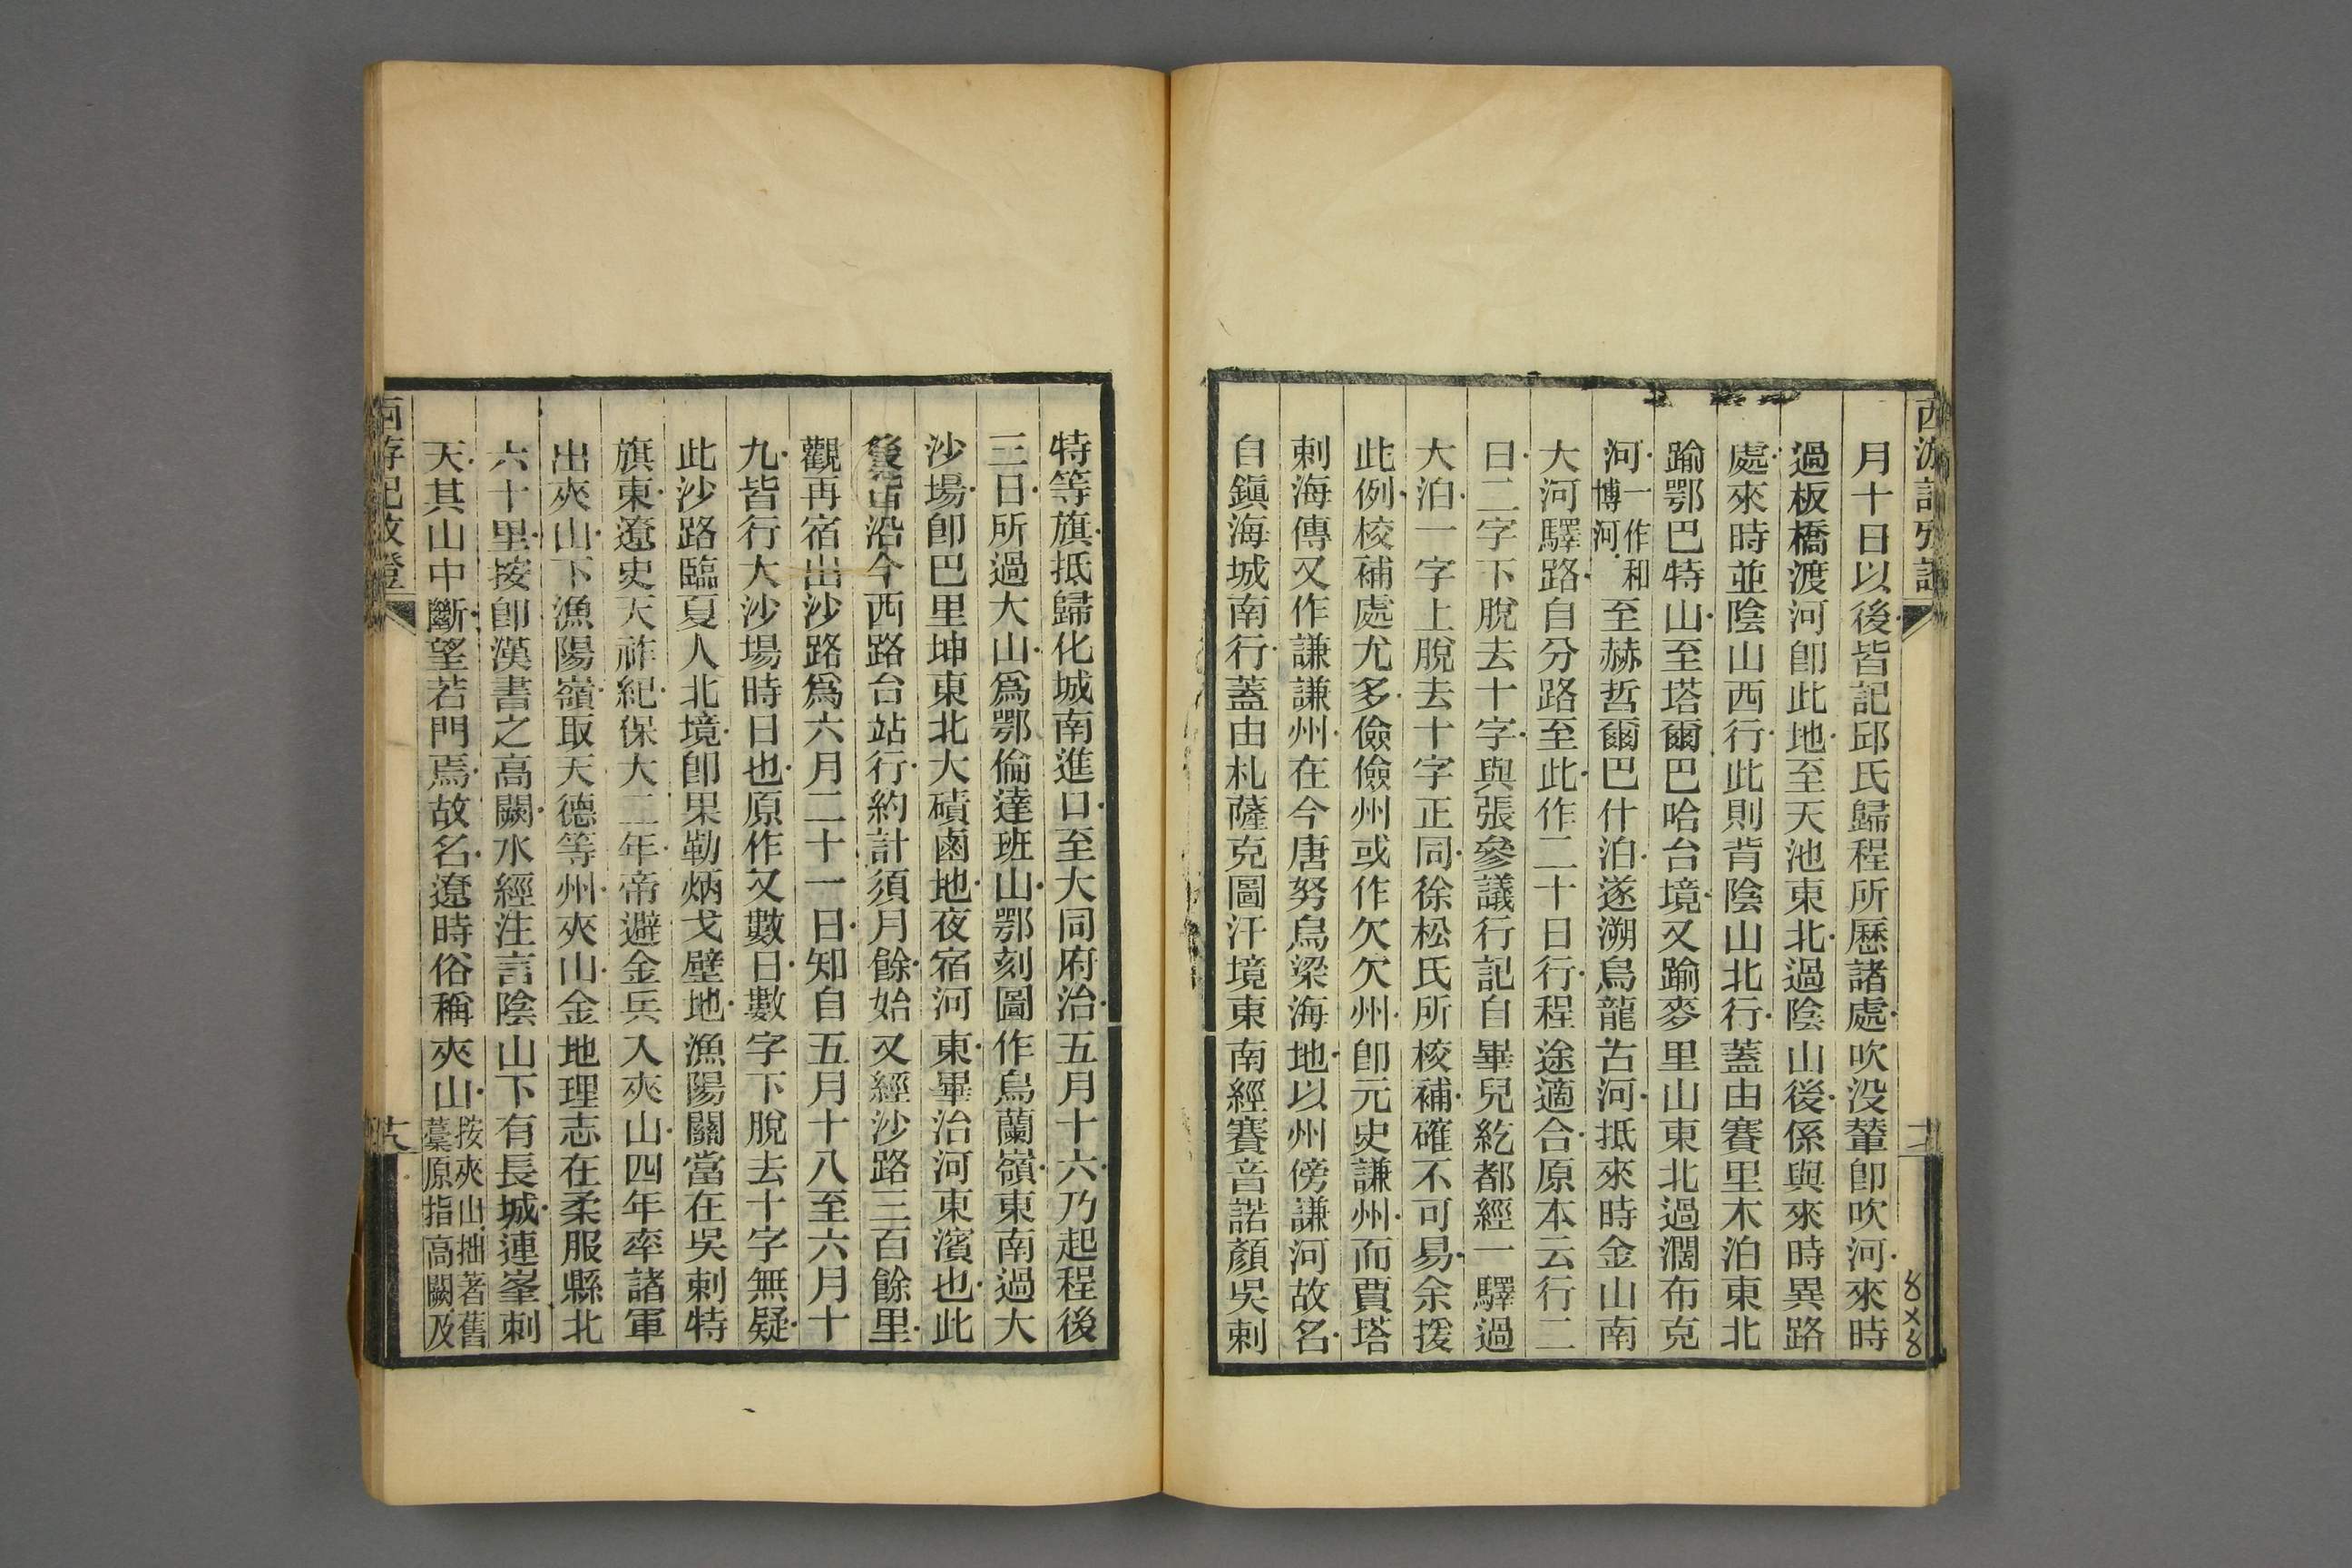 月十日以後皆記邱氏歸程所歷諸處吹没輦卽吹河來時
過板橋渡河卽此地至天池東北過陰山後係與來時異路
處來時並陰山西行此則背陰山北行蓋由賽里木泊東北
踰鄂巴特山至塔爾巴哈台境又踰麥里山東北過濶布克
河一作和博河至赫哲爾巴什泊遂溯烏龍古河抵來時金山南
大河驛路自分路至此作二十日行程途適合原本云行二
日二字下脫去十字與張參議行記自畢兒紇都經一驛過
大泊一字上脫去十字正同徐松氏所校補確不可易余援
此例校補處尤多儉儉州或作欠欠州卽元史謙州而賈塔
剌海傳又作謙謙州在今唐努烏梁海地以州傍謙河故名
自鎭海城南行蓋由札薩克圖汗境東南經賽音諾顏吳剌
特等旗抵歸化城南進口至大同府治五月十六乃起程後
三日所過大山爲鄂倫達班山鄂刻圖作烏蘭嶺東南過大
沙場卽巴里坤東北大磧鹵地夜宿河東畢治河東濱也此
後當沿今西路台站行約計須月餘始又經沙路三百餘里
觀再宿出沙路爲六月二十一日知自五月十八至六月十
九皆行大沙場時日也原作又數日數字下脫去十字無疑
此沙路臨夏人北境卽果勒炳戈壁地漁陽關當在吳剌特
旗東遼史天祚紀保大二年帝避金兵入夾山四年率諸軍
出夾山下漁陽嶺取天德等州夾山金地理志在柔服縣北
六十里按卽漢書之高闕水經注言陰山下有長城連峯刺
天其山中斷望若門焉故名遼時俗稱夾山按夾山拙著舊藁原指高闕及